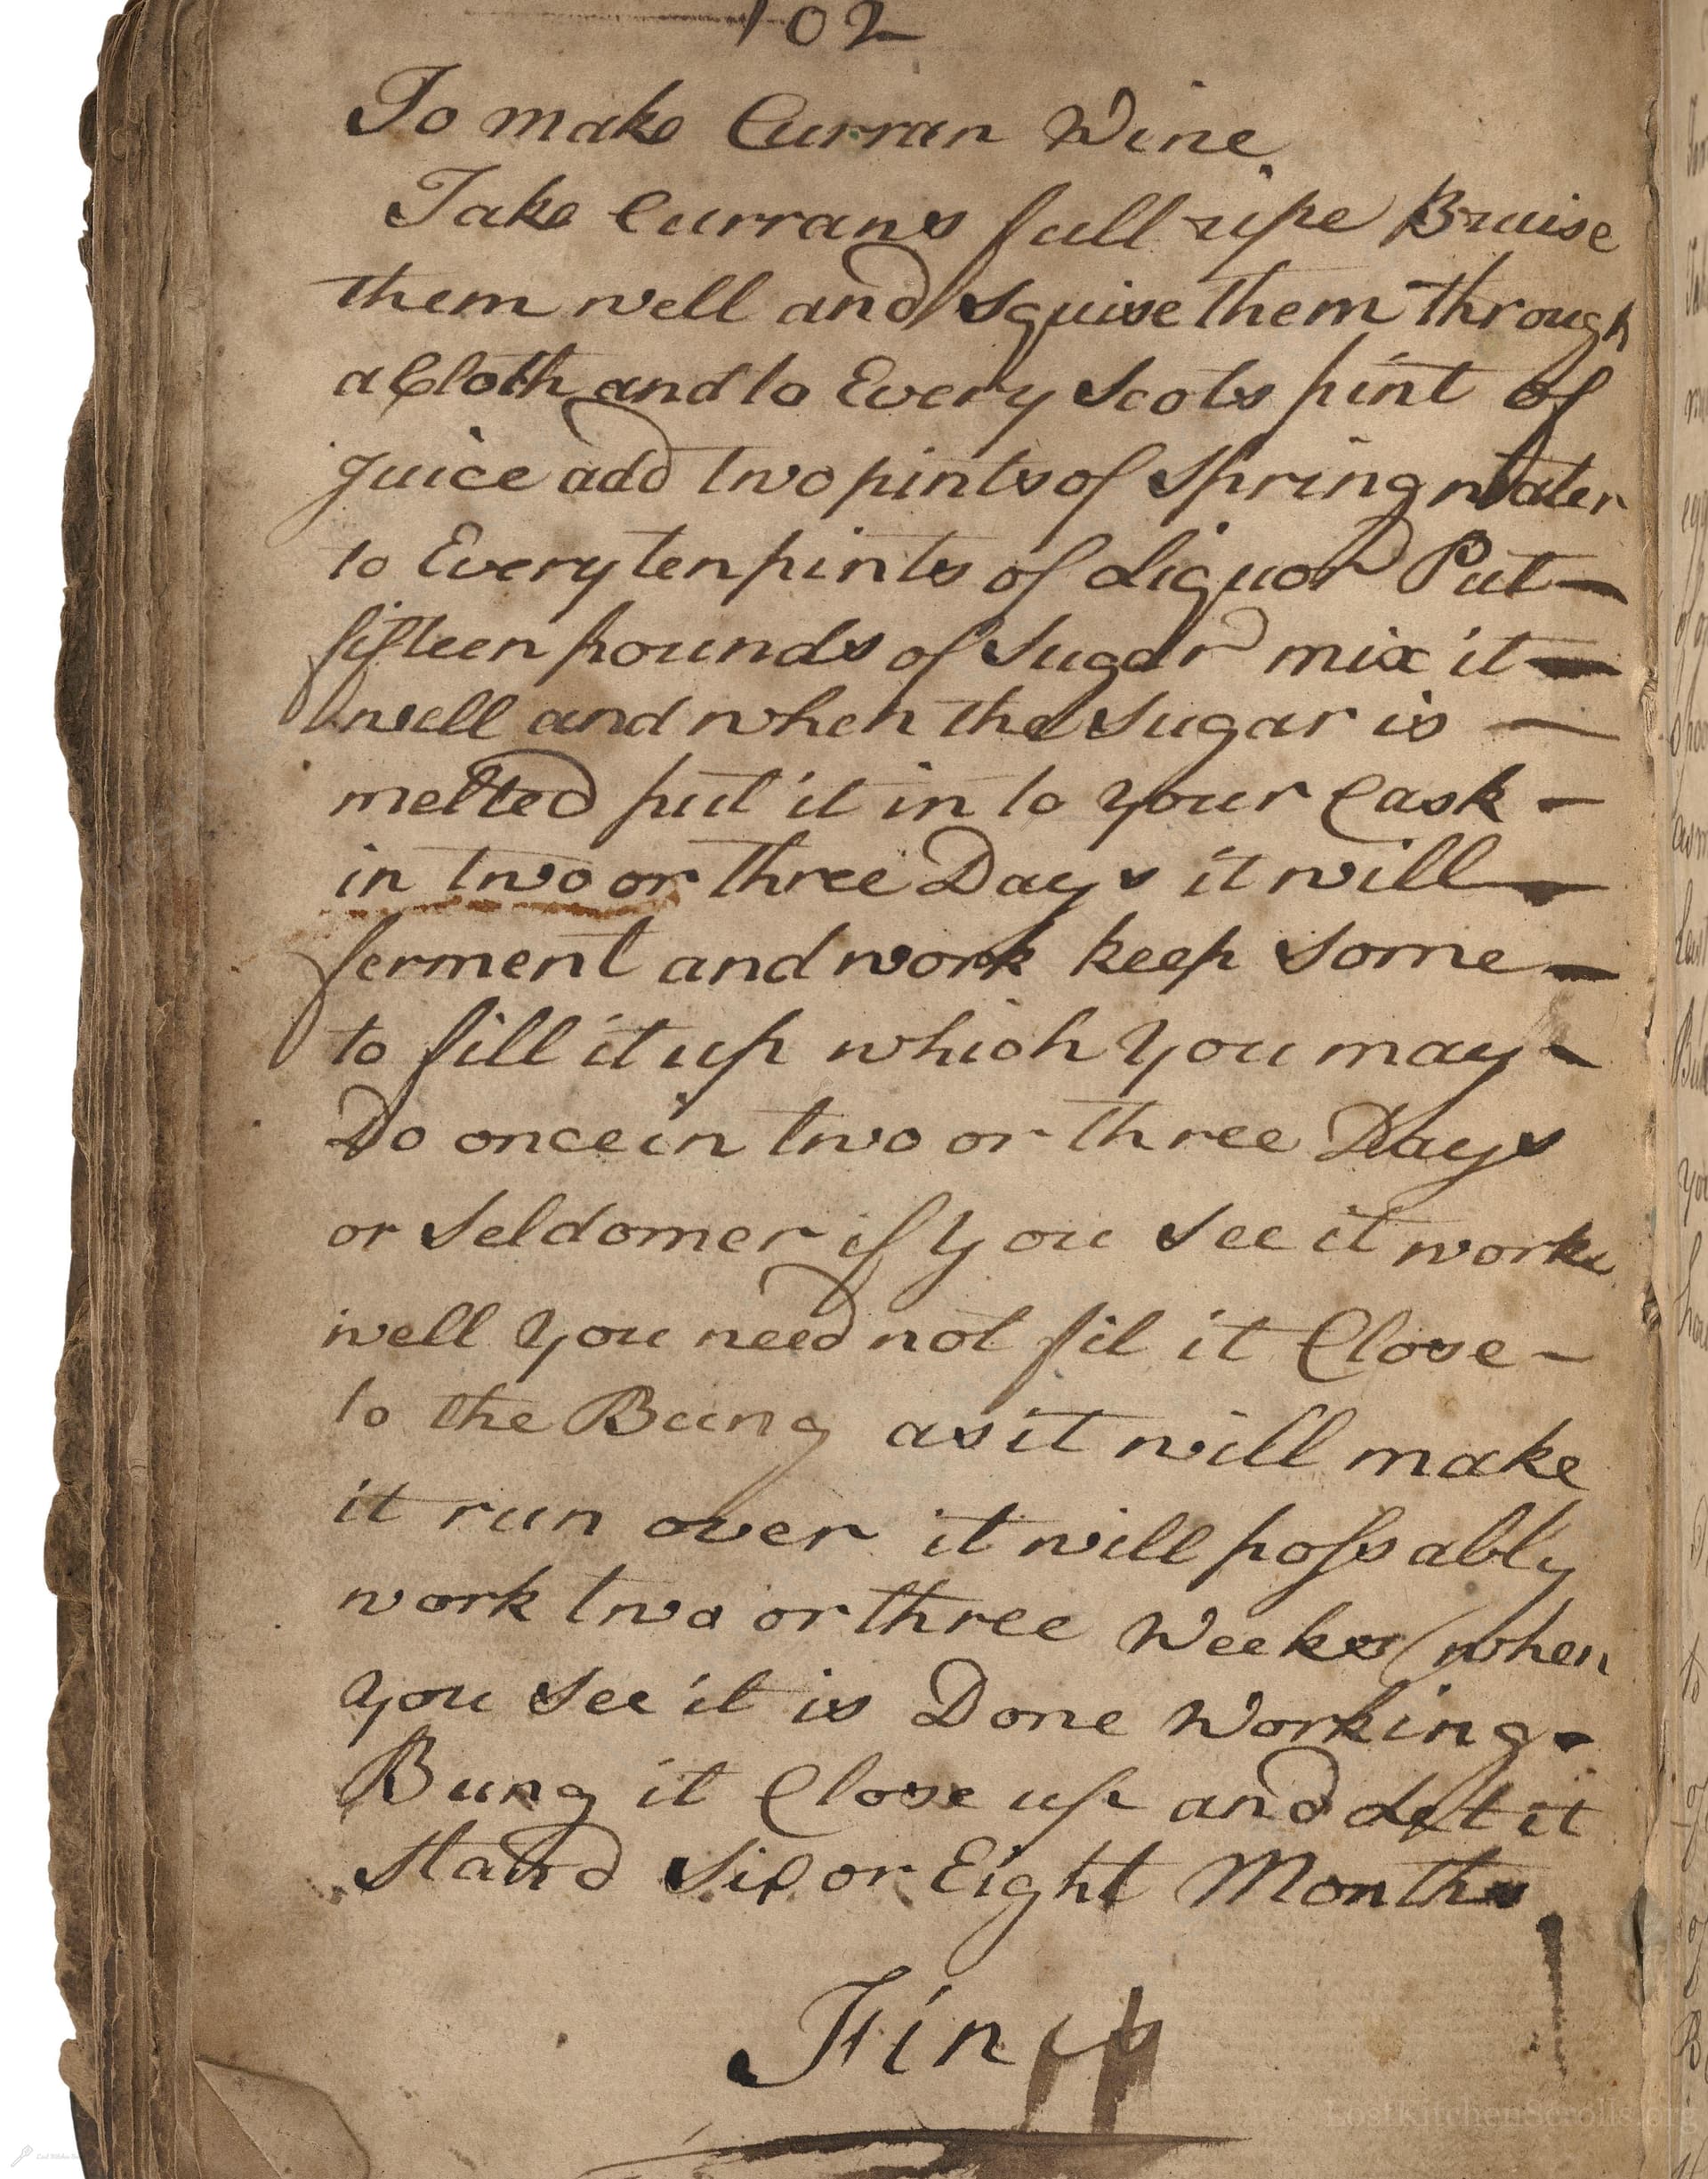 102
To make Curran Wine
Take Currans full ripe Bruise
them well and squise them through
a Cloth and to Every Scots pint of
juice add two pints of Spring water
to Every ten pints of Liquor Put
fifteen pounds of Sugar mix it
well and when the Sugar is
melted put it in to your Cask
in two or three Days it will
ferment and work keep some
to fill it up which you may
Do once in two or three Days
or Seldomer if you see it work
well you need not fil it Close
to the Bung as it will make
it run over it will poſsably
work two or three Weeks when
you see it is Done Working
Bung it Close up and Let it
stand Six or Eight Months
Finis
LostKitchenScrolls.org